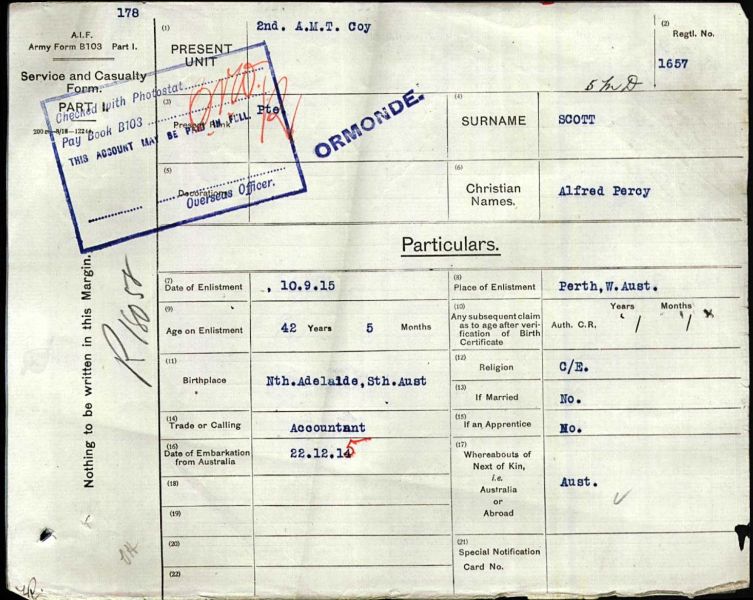 178
A.I.F.
Army Form B103 Part I.
Service and Casualty
Form.
PART I.
Checked with Photostat
Pay Book B103
THIS ACCOUNT MAY BE PAID IN FULL.
Overseas Officer.
Nothing to be written in this Margin.
(1)
PRESENT
UNIT
2nd. A.M.T. Coy
(2)
Regtl. No.
1657
(3)
Present Rank
Pte
ORMONDE.
(4)
SURNAME
SCOTT
(5)
Decorations
(6)
Christian
Names.
Alfred Percy
Particulars.
(7)
Date of Enlistment
10.9.15
(8)
Place of Enlistment
Perth, W.Aust.
(9)
Age on Enlistment
42 Years 5 Months
(10)
Any subsequent claim
as to age after veri-
fication of Birth
Certificate
Auth. C.R.
Years Months
/ /
(11)
Birthplace
Nth.Adelaide,Sth.Aust
(12)
Religion
C/E.
(13)
If Married
No.
(14)
Trade or Calling
Accountant
(15)
If an Apprentice
No.
(16)
Date of Embarkation
from Australia
22.12.15
(17)
Whereabouts of
Next of Kin,
i.e.
Australia
or
Abroad
Aust.
(18)
(19)
(20)
(21)
Special Notification
Card No.
(22)